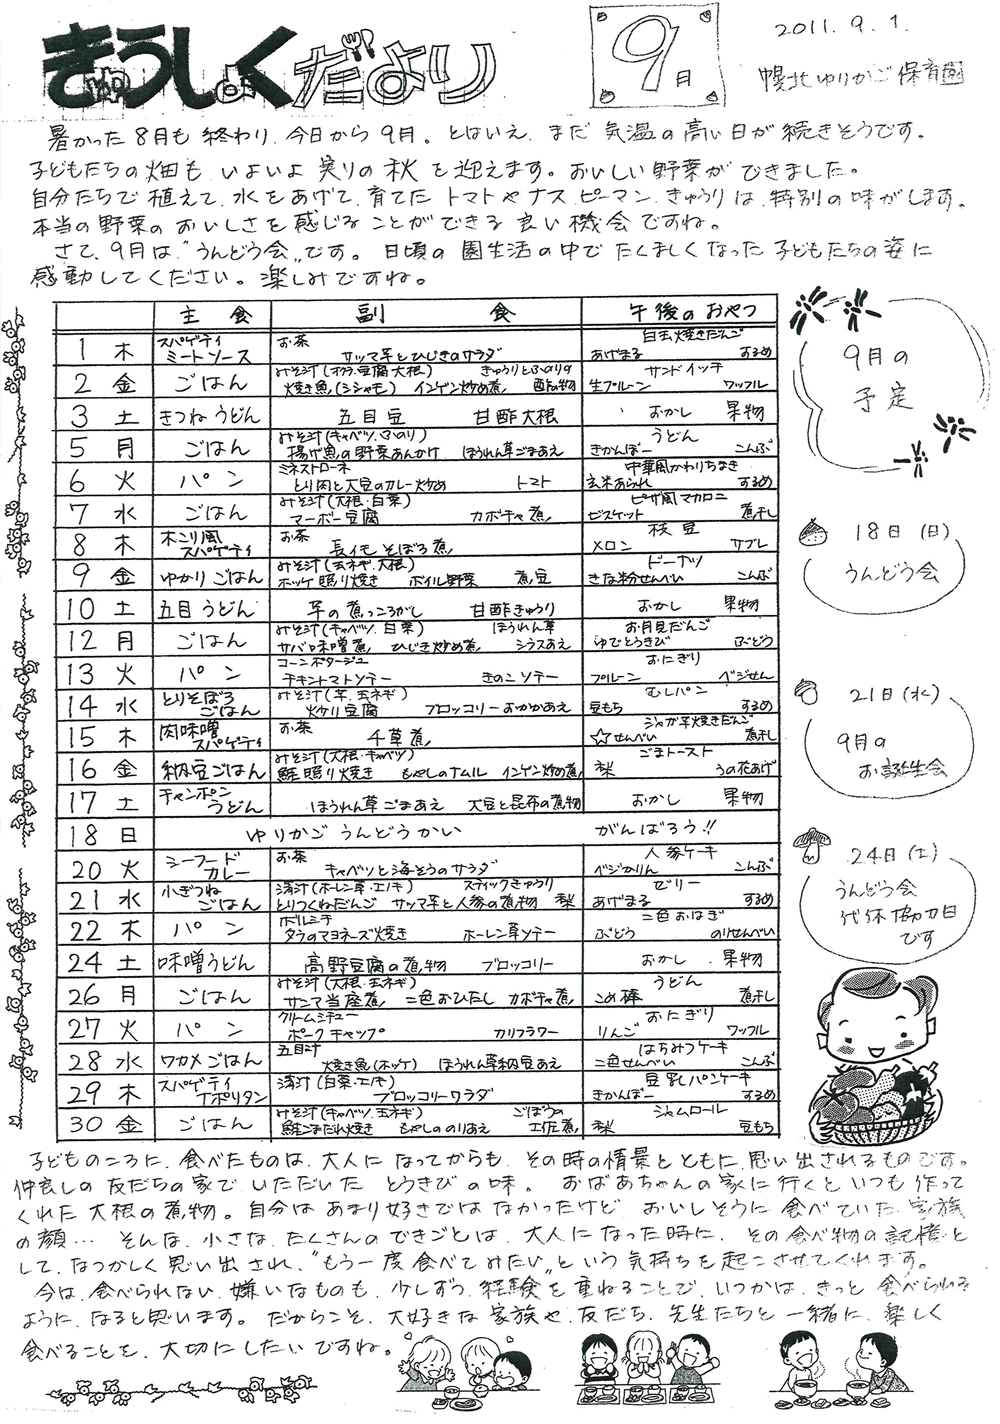 きゅうしょくだより
9月
2011.9.1.
幌北ゆりかご保育園
暑かった8月も終わり、今日から9月。とはいえ、まだ気温の高い日が続きそうです。
子どもたちの畑も、いよいよ実りの秋を迎えます。おいしい野菜ができました。
自分たちで植えて、水をあげて、育てたトマトやナス、ピーマン、きゅうりは、特別の味がします。
本当の野菜のおいしさを感じることができる良い機会ですね。
さて、9月は"うんどう会"です。日頃の園生活の中でたくましくなった子どもたちの姿に
感動してください。楽しみですね。
主食 副食 午後のおやつ
1 木 スパゲティミートソース お茶 サツマ芋とひじきのサラダ 白玉焼きだんご あげまる するめ
2 金 ごはん みそ汁(オクラ・豆腐・大根) きゅうりとふのりの酢の物 焼き魚(シシャモ) インゲン炒め煮 サンドイッチ 生プルーン ワッフル
3 土 きつねうどん 五目豆 甘酢大根 おかし 果物
5 月 ごはん みそ汁(キャベツ、ふのり) 揚げ魚の野菜あんかけ ほうれん草ごまあえ うどん きかんぼー こんぶ
6 火 パン ミネストローネ とり肉と大豆のカレー炒め トマト 中華風かわりちまき 玄米あられ するめ
7 水 ごはん みそ汁(大根・白菜) マーボー豆腐 カボチャ煮 ピザ風マカロニ ビスケット 煮干し
8 木 木こり風スパゲティ お茶 長イモそぼろ煮 枝豆 メロン サブレ
9 金 ゆかりごはん みそ汁(玉ネギ・大根) ホッケ照り焼き ボイル野菜 煮豆 ドーナツ きな粉せんべい こんぶ
10 土 五目うどん 芋の煮っころがし 甘酢きゅうり おかし 果物
12 月 ごはん みそ汁(キャベツ、白菜) ほうれん草シラスあえ サバ味噌煮 ひじき炒め煮 お月見だんご ゆでとうきび ぶどう
13 火 パン コーンポタージュ チキントマトソテー きのこソテー おにぎり プルーン ベジせん
14 水 とりそぼろごはん みそ汁(芋、玉ネギ) 炒り豆腐 ブロッコリーおかかあえ むしパン 豆もち するめ
15 木 肉味噌スパゲティ お茶 千草煮 ジャガ芋焼きだんご ☆せんべい 煮干し
16 金 納豆ごはん みそ汁(大根・キャベツ) 鮭照り焼き もやしのナムル インゲン炒め煮 ごまトースト 梨 うの花あげ
17 土 チャンポンうどん ほうれん草ごまあえ 大豆と昆布の煮物 おかし 果物
18 日 ゆりかごうんどうかい がんばろう!!
20 火 シーフードカレー お茶 キャベツと海そうのサラダ 人参ケーキ ベジかりん こんぶ
21 水 小ぎつねごはん 清汁(ホーレン草・エノキ) スティックきゅうり とりつくねだんご サツマ芋と人参の煮物 梨 ゼリー あげまる するめ
22 木 パン ボルシチ タラのマヨネーズ焼き ホーレン草ソテー 二色おはぎ ぶどう のりせんべい
24 土 味噌うどん 高野豆腐の煮物 ブロッコリー おかし 果物
26 月 ごはん みそ汁(大根・玉ネギ) サンマ当座煮 二色おひたし カボチャ煮 うどん こめ棒 煮干し
27 火 パン クリームシチュー ポークチャップ カリフラワー おにぎり りんご ワッフル
28 水 ワカメごはん 五目汁 焼き魚(ホッケ) ほうれん草納豆あえ はちみつケーキ 二色せんべい こんぶ
29 木 スパゲティナポリタン 清汁(白菜・エノキ) ブロッコリーサラダ 豆乳パンケーキ きかんぼー するめ
30 金 ごはん みそ汁(キャベツ、玉ネギ) ごぼうの土佐煮 鮭ごまだれ焼き もやしののりあえ ジャムロール 梨 豆もち
9月の
予定
18日(日)
うんどう会
21日(水)
9月の
お誕生会
24日(土)
うんどう会
代休協力日
です
子どものころに、食べたものは、大人になってからも、その時の情景とともに、思い出されるものです。
仲良しの友だちの家で、いただいたとうきびの味。おばあちゃんの家に行くといつも作って
くれた大根の煮物。自分はあまり好きではなかったけど、おいしそうに食べていた家族
の顔…そんな、小さな、たくさんのできごとは、大人になった時に、その食べ物の記憶と
して、なつかしく思い出され、"もう一度食べてみたい"という気持ちを起こさせてくれます。
今は、食べられない、嫌いなものも、少しずつ、経験を重ねることで、いつかは、きっと食べられる
ように、なると思います。だからこそ、大好きな家族や、友だち、先生たちと一緒に、楽しく
食べることを、大切にしたいですね。